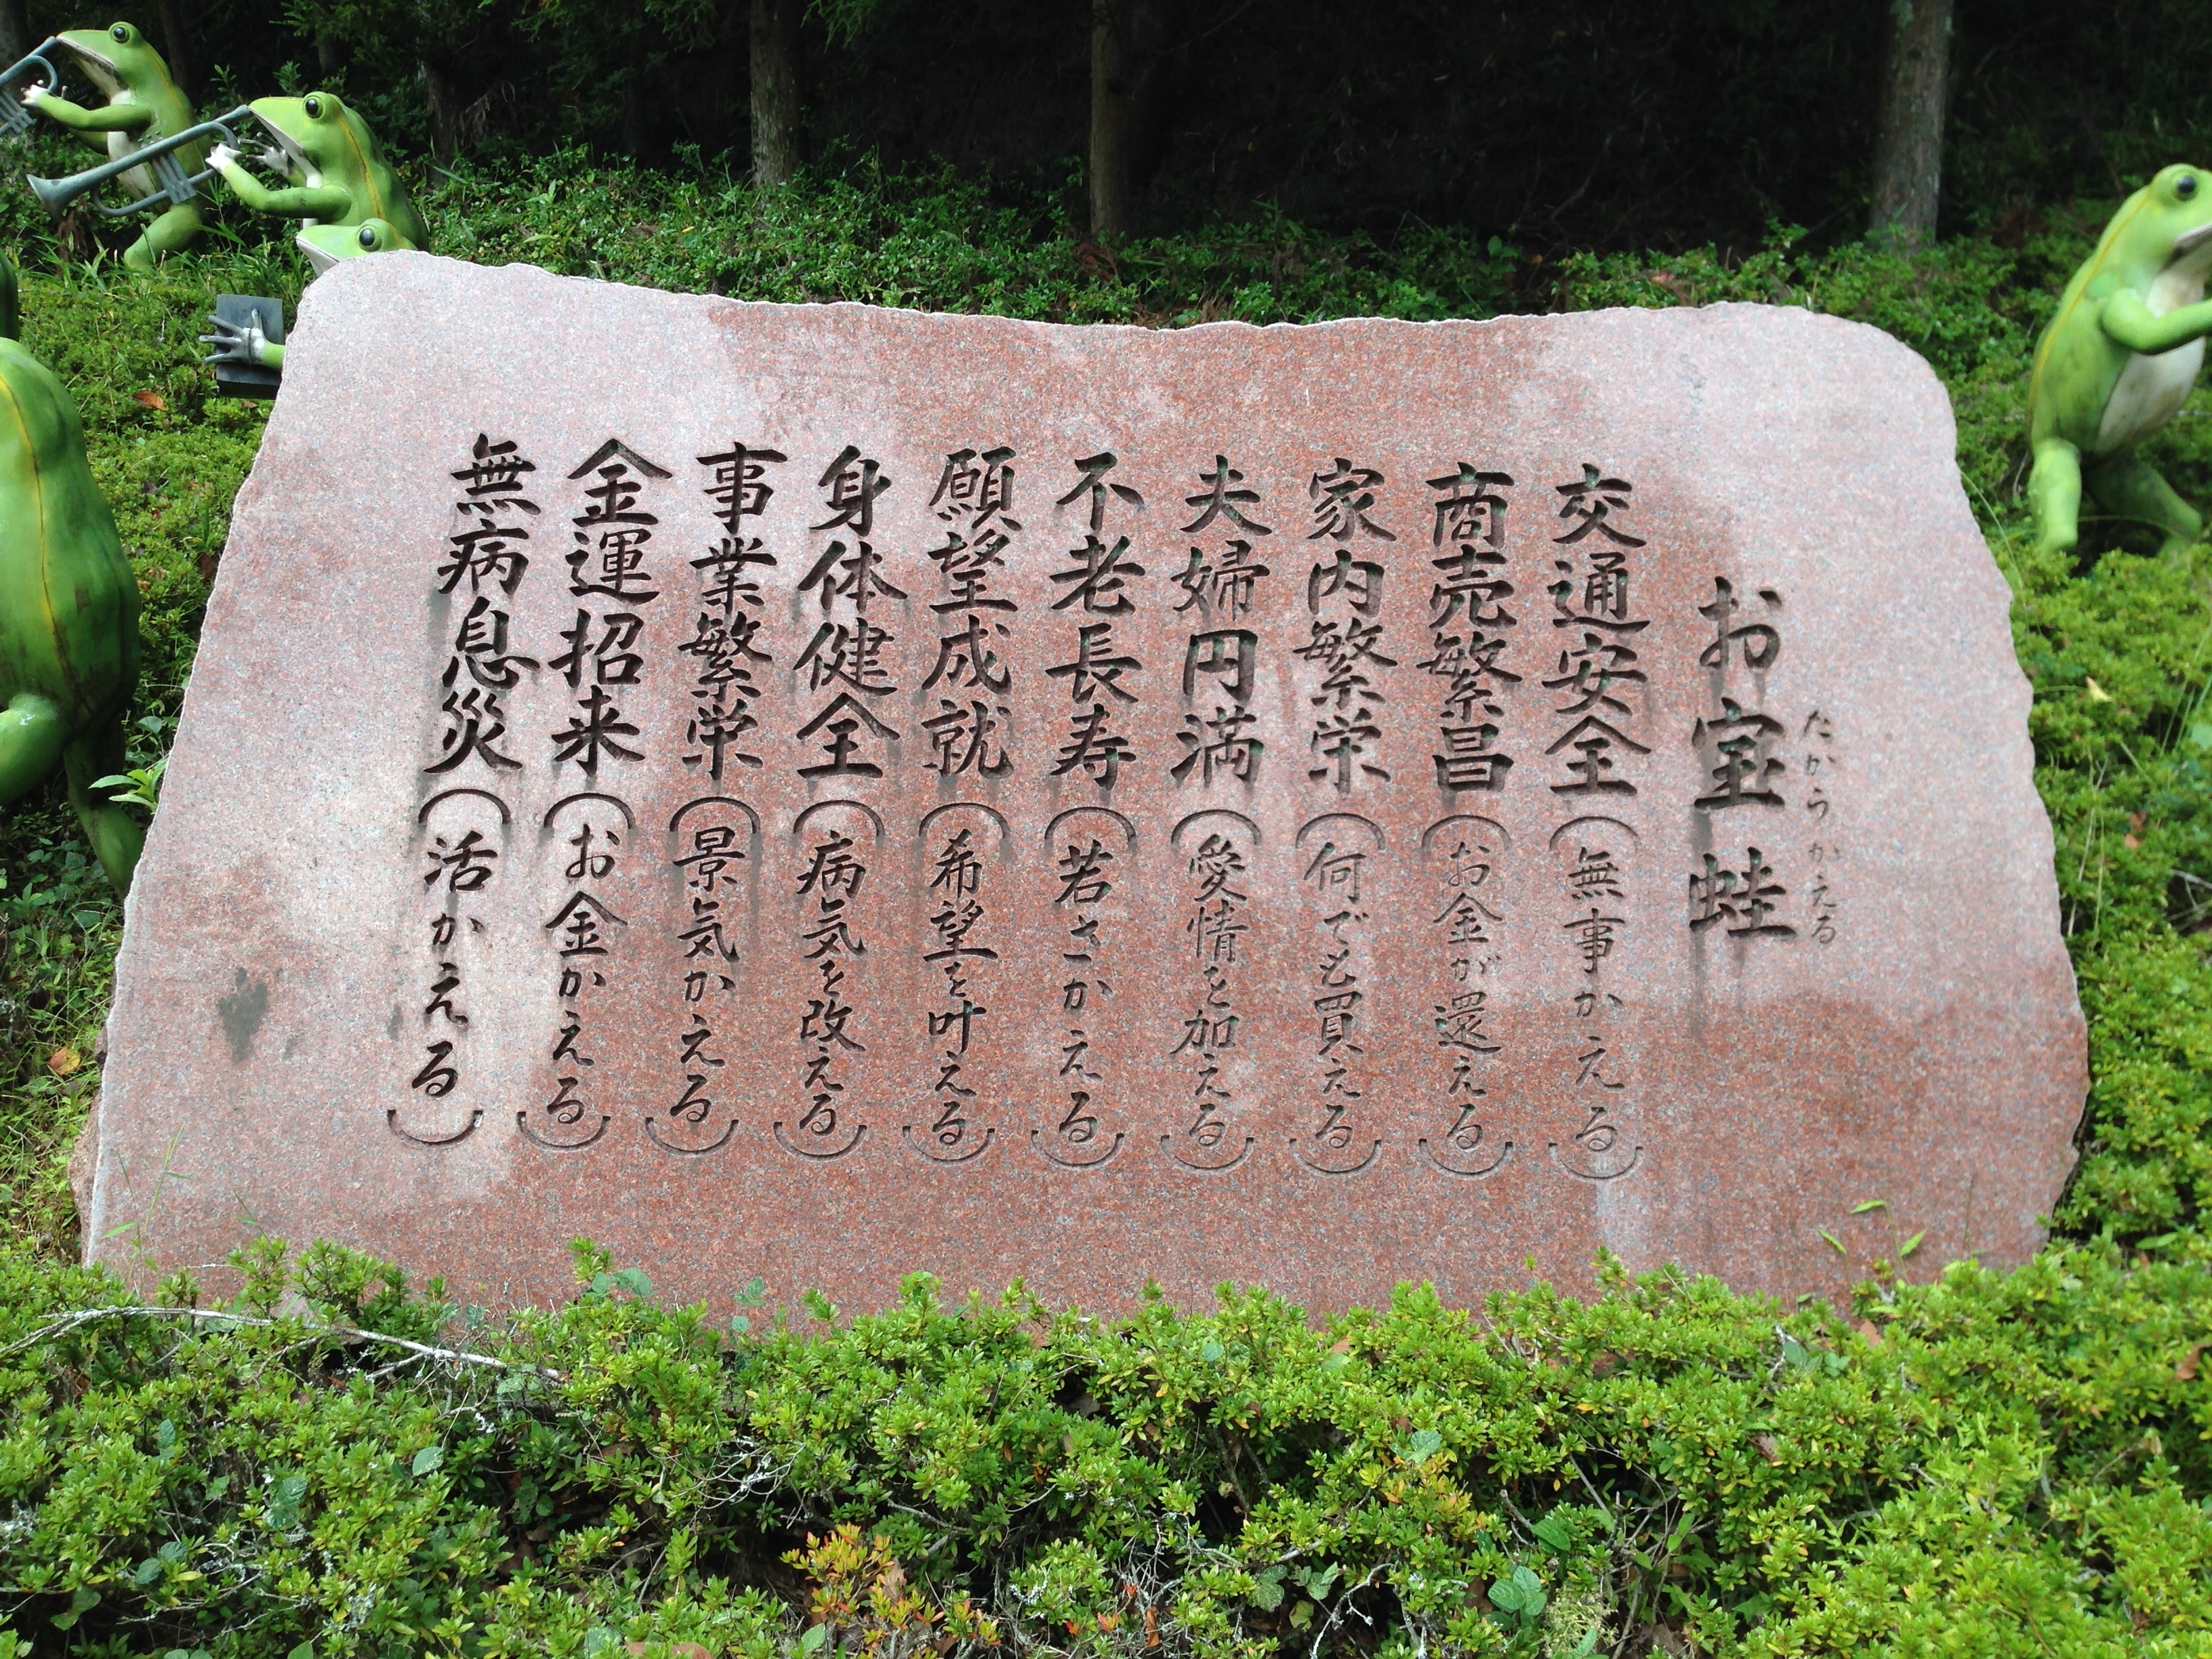 お宝蛙
たからかえる
交通安全（無事かえる）
商売繁昌（お金が還える）
家内繁栄（何でも買える）
夫婦円満（愛情を加える）
不老長寿（若さかえる）
願望成就（希望を叶える）
身体健全（病気を改える）
事業繁栄（景気かえる）
金運招来（お金かえる）
無病息災（活かえる）